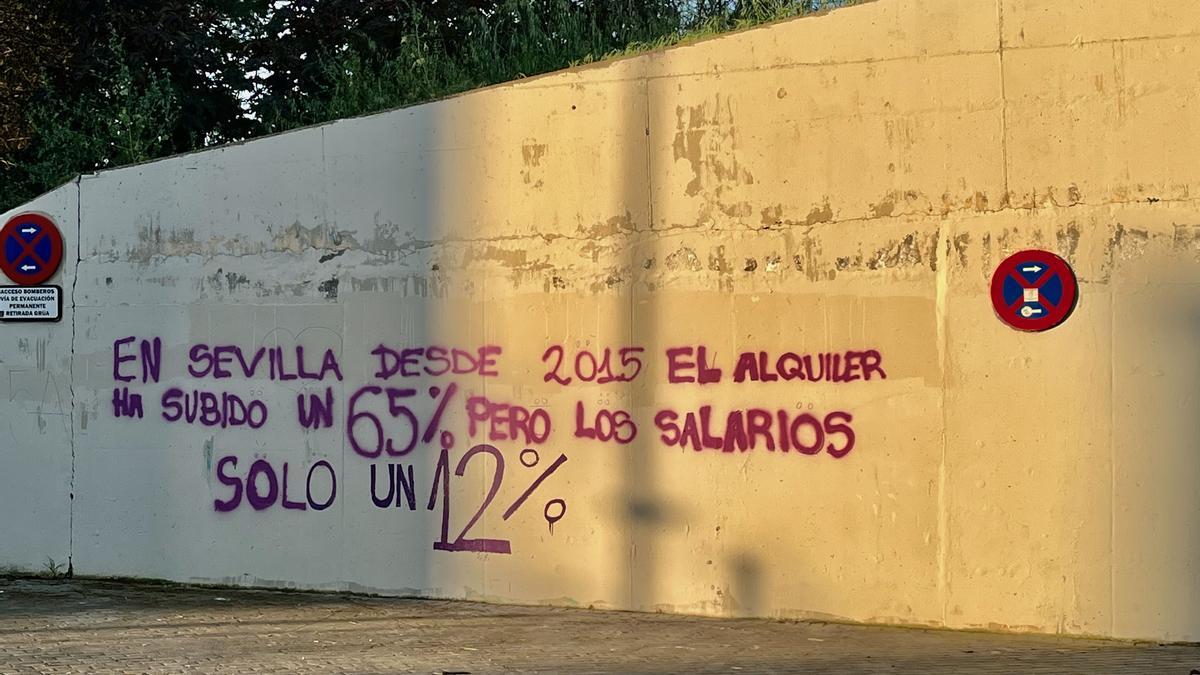 ACCESO BOMBEROS
VÍA DE EVACUACIÓN
PERMANENTE
RETIRADA GRÚA
EN SEVILLA DESDE 2015 EL ALQUILER
HA SUBIDO UN 65% PERO LOS SALARIOS
SOLO UN 12%